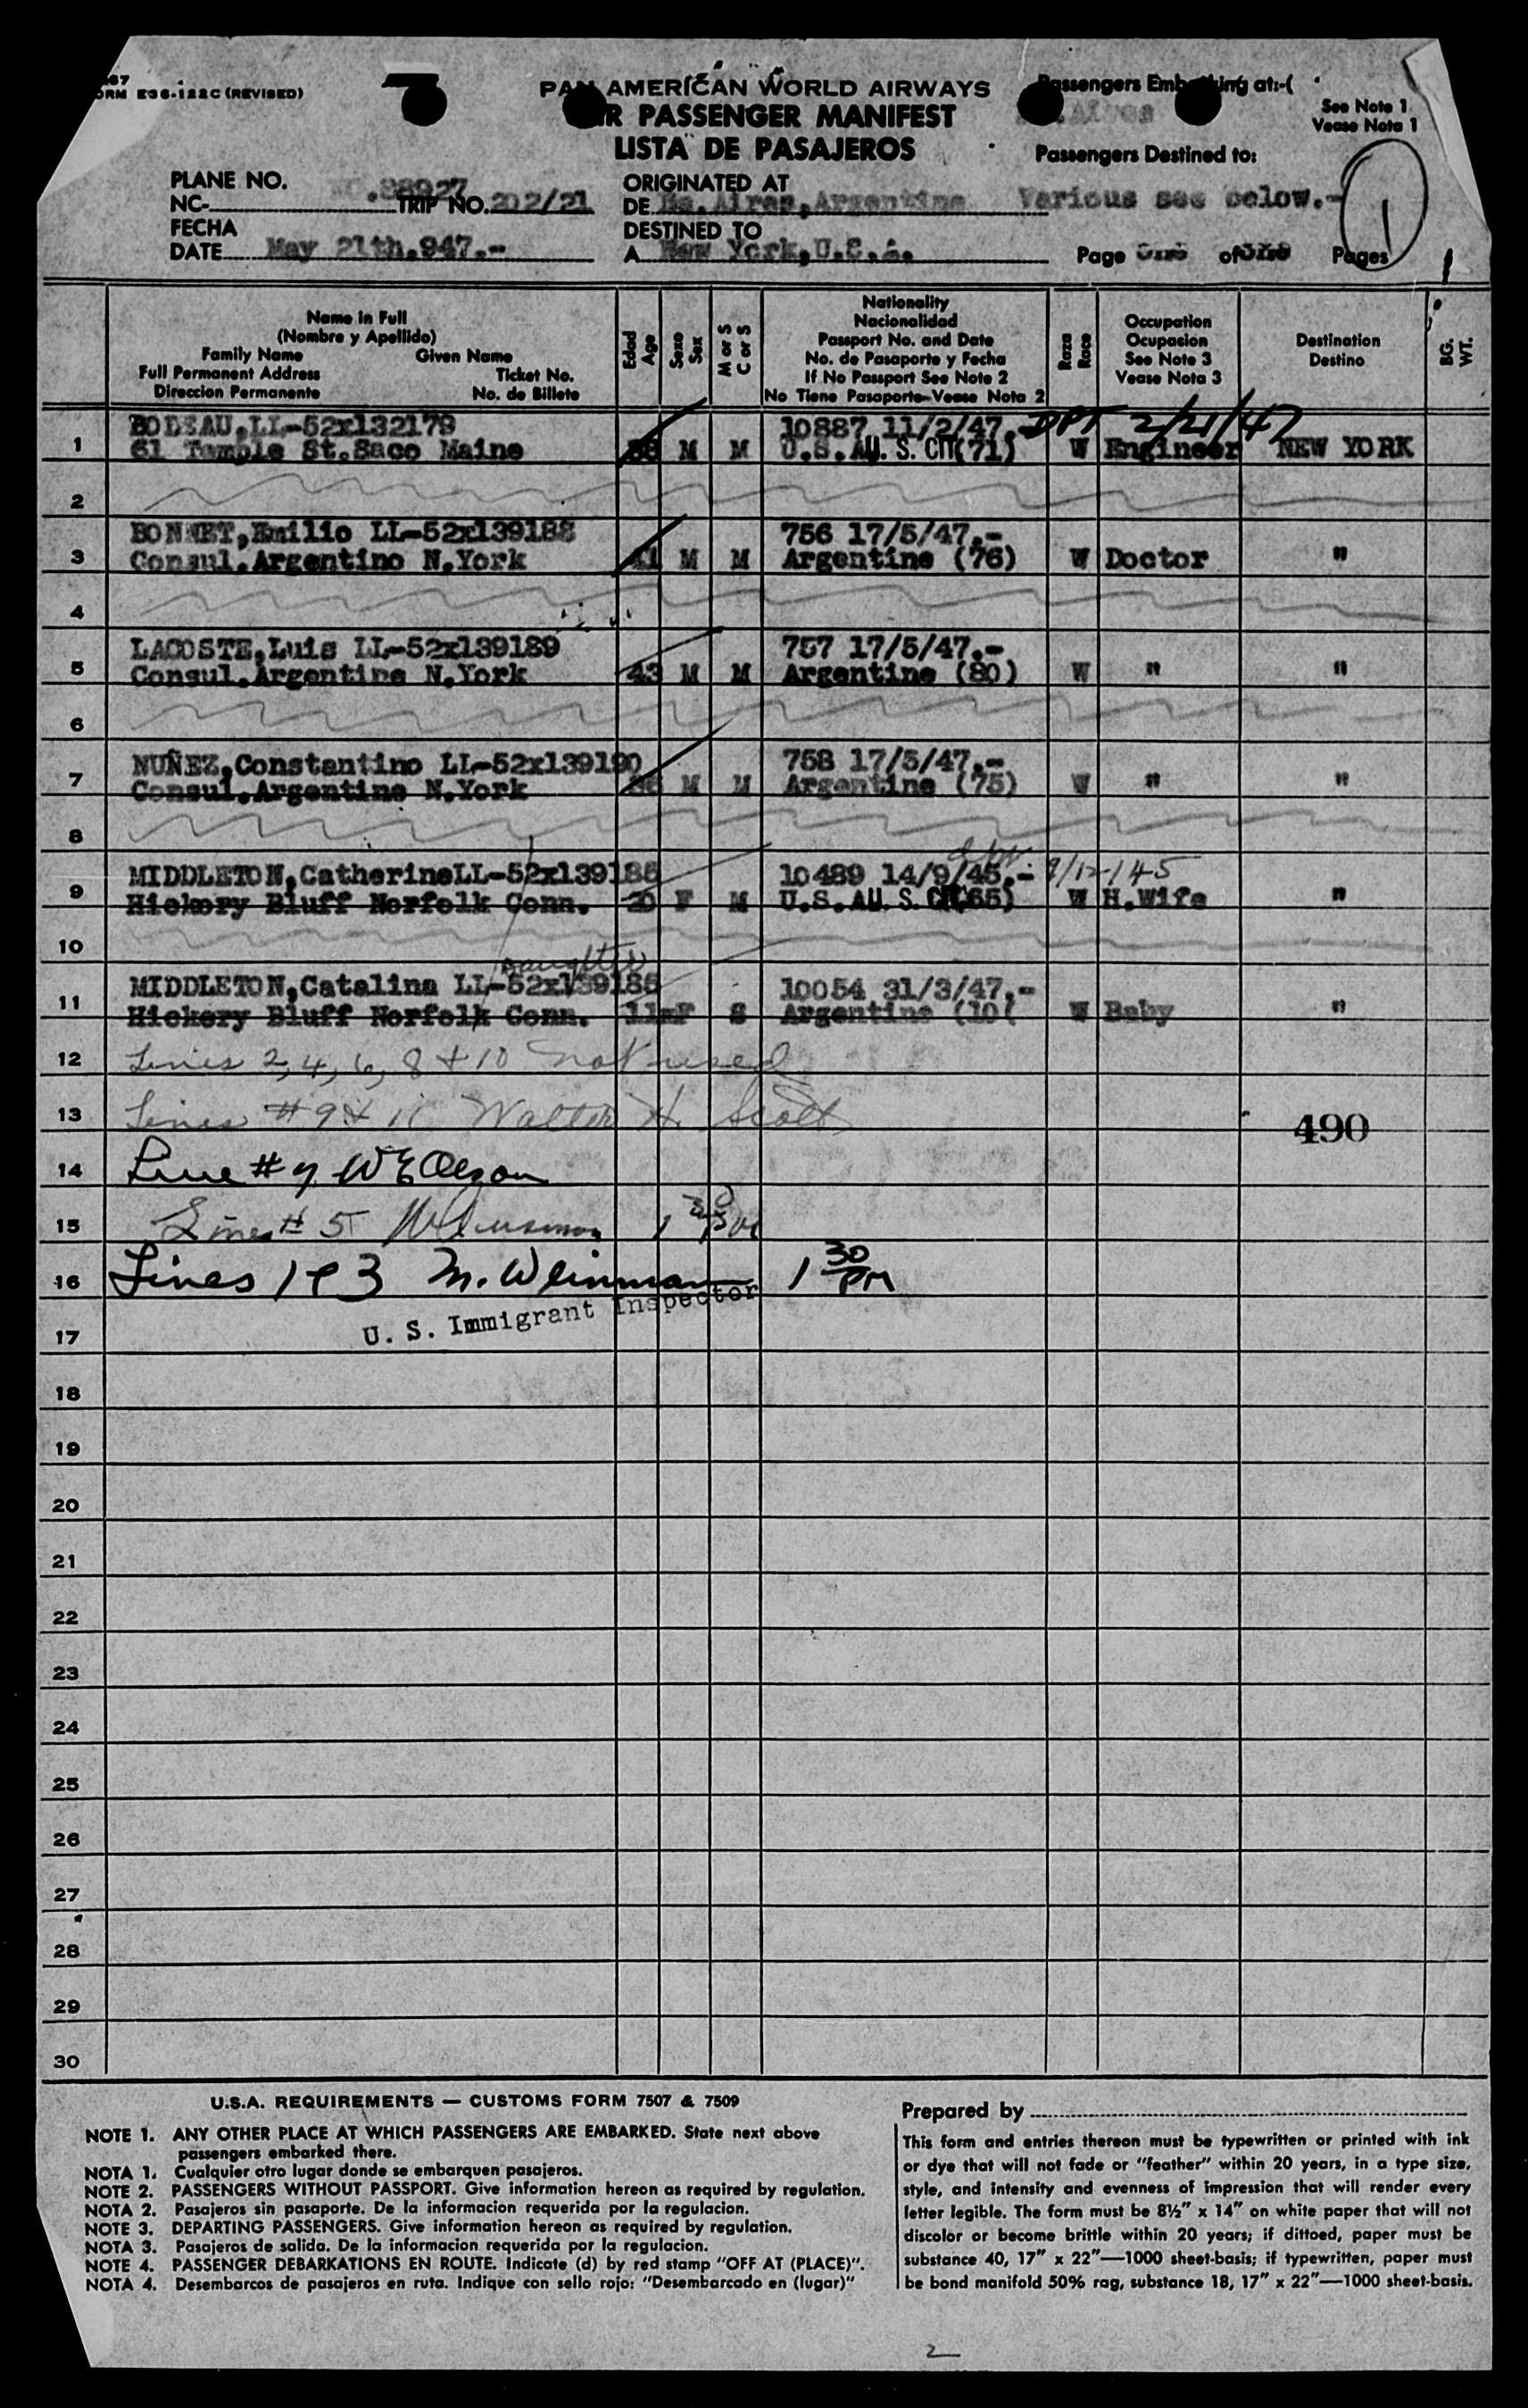 FORM E36-122C (REVISED)
PAN AMERICAN WORLD AIRWAYS
R PASSENGER MANIFEST
LISTA DE PASAJEROS
Passengers Embarking at:-(
See Note 1
Vease Nota 1
Passengers Destined to:
Various see below.-
1
PLANE NO.
NC- .38927 TRIP NO. 202/21
FECHA
DATE May 21th.947.-
ORIGINATED AT
DE Bs.Aires,Argentine
DESTINED TO
A New York,U.S.A.
Page One of One Pages
Name in Full
(Nombre y Apellido)
Family Name Given Name
Full Permanent Address Ticket No.
Direccion Permanente No. de Billete
Edad
Age
Sexo
Sex
M or S
C or S
Nationality
Nacionalidad
Passport No. and Date
No. de Pasaporte y Fecha
If No Passport See Note 2
No Tiene Pasaporte-Vease Nota 2
Raza
Race
Occupation
Ocupacion
See Note 3
Vease Nota 3
Destination
Destino
BG.
WT.
LL-52x132179 10887 11/2/47.- DPT 2/21/47
1 61 Temple St.Saco Maine M M U.S.A U. S. CIT (71) W Engineer NEW YORK
2
BONNET,Emilio LL-52x139188 756 17/5/47.-
3 Consul.Argentino N.York 41 M M Argentine (76) W Doctor "
4
LACOSTE,Luis LL-52x139189 757 17/5/47.-
5 Consul.Argentine N.York 43 M M Argentine (80) W " "
6
NUÑEZ,Constantino LL-52x139190 758 17/5/47.-
7 Consul.Argentine N.York M M Argentine (75) W " "
8
MIDDLETON,CatherineLL-52x139185 10489 14/9/45.- 9/12/45
9 Hickory Bluff Norfolk Conn. 20 F M U.S.A U. S. CIT (65) W H.Wife "
10
Daughter
MIDDLETON,Catalina LL-52x139185 10054 31/3/47.-
11 Hickory Bluff Norfolk Conn. 11m F S Argentine (10( W Baby "
12 Lines 2, 4, 6, 8 + 10 not used
13 Lines #9 & 11 Walter H. Scott
490
14 Line # 7 W E Olson
15 Line # 5 1 30 PM
16 Lines 1 & 3 M. Weinman 1 30 PM
U. S. Immigrant Inspector
17
18
19
20
21
22
23
24
25
26
27
28
29
30
U.S.A. REQUIREMENTS — CUSTOMS FORM 7507 & 7509
NOTE 1. ANY OTHER PLACE AT WHICH PASSENGERS ARE EMBARKED. State next above
passengers embarked there.
NOTA 1. Cualquier otro lugar donde se embarquen pasajeros.
NOTE 2. PASSENGERS WITHOUT PASSPORT. Give information hereon as required by regulation.
NOTA 2. Pasajeros sin pasaporte. De la informacion requerida por la regulacion.
NOTE 3. DEPARTING PASSENGERS. Give information hereon as required by regulation.
NOTA 3. Pasajeros de salida. De la informacion requerida por la regulacion.
NOTE 4. PASSENGER DEBARKATIONS EN ROUTE. Indicate (d) by red stamp "OFF AT (PLACE)".
NOTA 4. Desembarcos de pasajeros en ruta. Indique con sello rojo: "Desembarcado en (lugar)"
Prepared by
This form and entries thereon must be typewritten or printed with ink
or dye that will not fade or "feather" within 20 years, in a type size,
style, and intensity and evenness of impression that will render every
letter legible. The form must be 8½" x 14" on white paper that will not
discolor or become brittle within 20 years; if dittoed, paper must be
substance 40, 17" x 22"—1000 sheet-basis; if typewritten, paper must
be bond manifold 50% rag, substance 18, 17" x 22"—1000 sheet-basis.
2